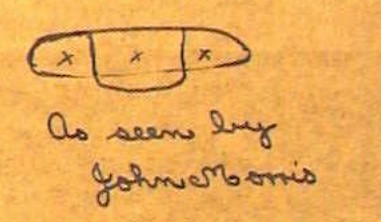 x x x
As seen by
John Morris